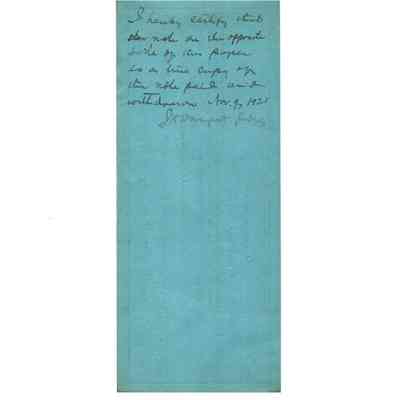 I hereby certify that
the note on the opposite
side of this paper
is a true copy of
the note paid and
withdrawn Nov. 9, 1921